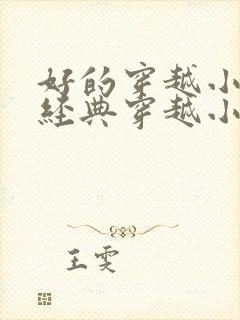 好的穿越小
經典穿越小
王雯